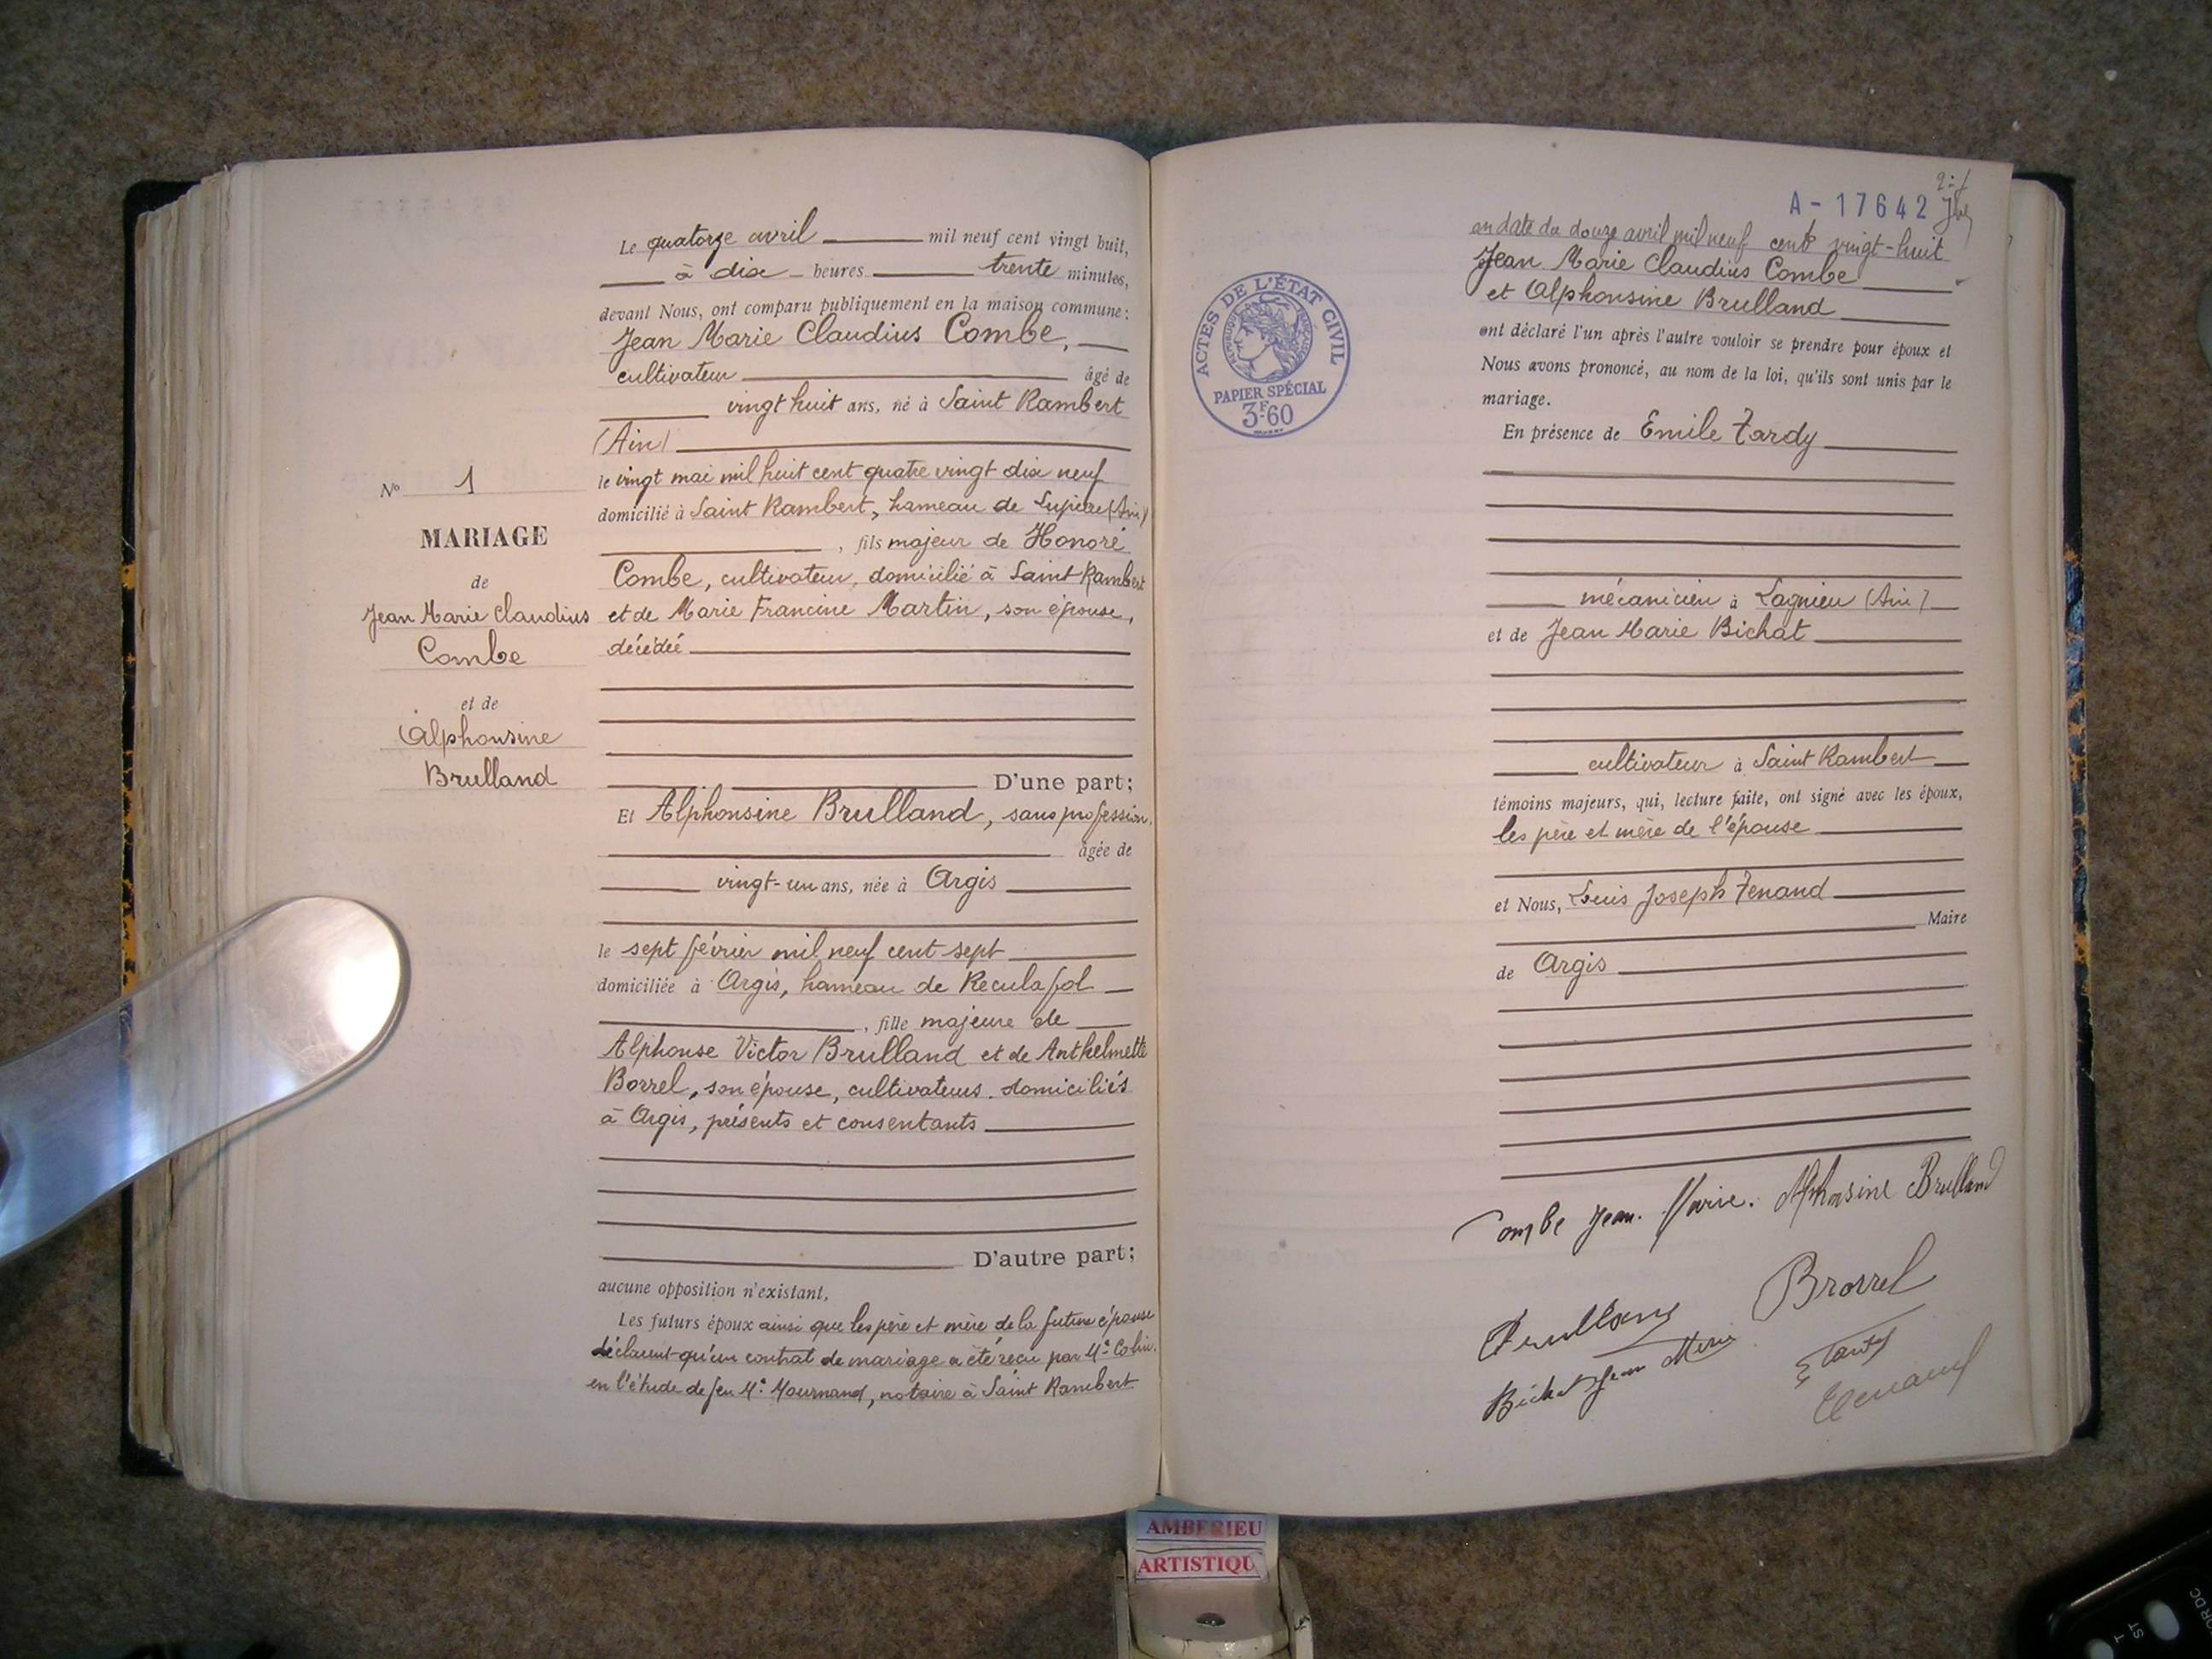 Le quatorze avril mil neuf cent vingt huit,
à dix heures trente minutes,
devant Nous, ont comparu publiquement en la maison commune :
Jean Marie Claudius Combe,
cultivateur âgé de
vingt huit ans, né à Saint Rambert
(Ain)
le vingt mai mil huit cent quatre vingt dix neuf
domicilié à Saint Rambert, hameau de (Ain)
, fils majeur de Honoré
Combe, cultivateur, domicilié à Saint Rambert
et de Marie Francine Martin, son épouse,
décédée
D'une part;
Et Alphonsine Brulland, sans profession,
âgée de
vingt-un ans, née à Argis
le sept février mil neuf cent sept
domiciliée à Argis, hameau de Reculafol
, fille majeure de
Alphonse Victor Brulland et de Anthelmette
Borrel, son épouse, cultivateurs, domiciliés
à Argis, présents et consentants
D'autre part;
aucune opposition n'existant,
Les futurs époux ainsi que les père et mère de la future épouse
déclarent qu'un contrat de mariage a été reçu par Me Colin,
en l'étude de feu Me Mournand, notaire à Saint Rambert
No 1
MARIAGE
de
Jean Marie Claudius
Combe
et de
Alphonsine
Brulland
A - 17642
en date du douze avril mil neuf cent vingt-huit
Jean Marie Claudius Combe
et Alphonsine Brulland
ont déclaré l'un après l'autre vouloir se prendre pour époux et
Nous avons prononcé, au nom de la loi, qu'ils sont unis par le
mariage.
En présence de Emile Tardy
mécanicien à Lagnieu (Ain)
et de Jean Marie Bichat
cultivateur à Saint Rambert
témoins majeurs, qui, lecture faite, ont signé avec les époux,
les père et mère de l'épouse
et Nous, Louis Joseph Tenand
Maire
de Argis
Combe Jean Marie. Alphonsine Brulland
Brulland Borrel
Bichat Jean Marie E Tardy
Tenand
ACTES DE L'ÉTAT CIVIL
RÉPUBLIQUE FRANÇAISE
PAPIER SPÉCIAL
3F60
AMBERIEU
ARTISTIQU